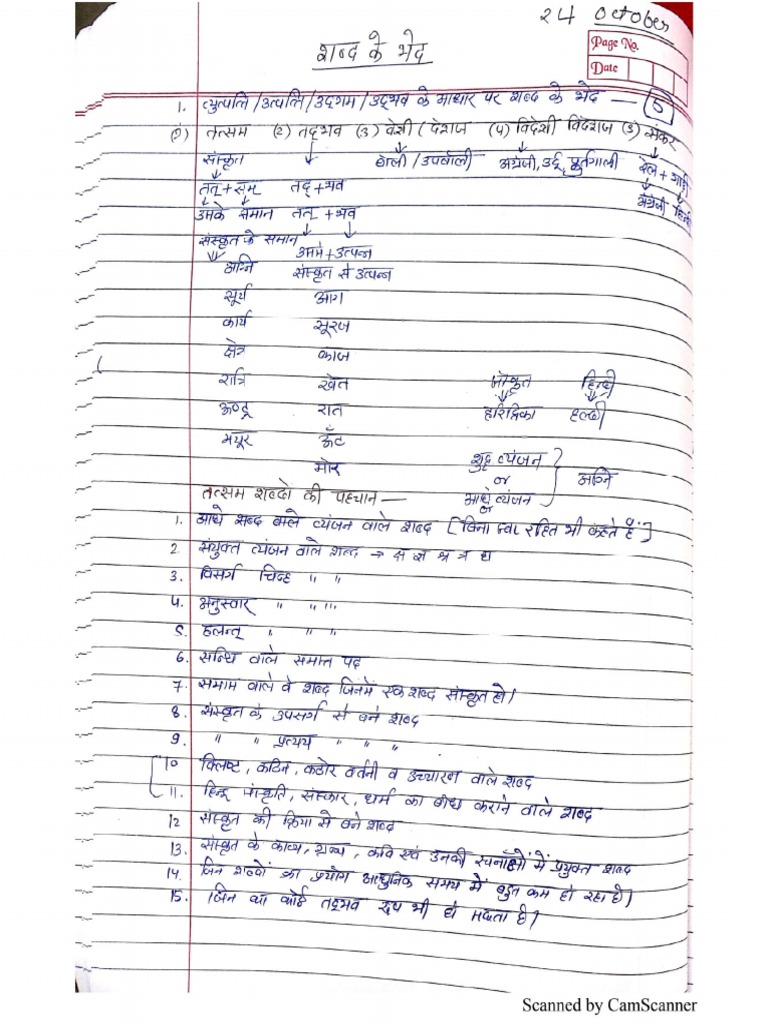 24 October
शब्द के भेद
Page No.
Date
1. व्युत्पत्ति/उत्पत्ति/उद्गम/उद्भव के आधार पर शब्द के भेद — 5
(1) तत्सम (2) तद्भव (3) देशी/देशज (4) विदेशी विदेशज (5) संकर
संस्कृत बोली/उपबोली अंग्रेजी, उर्दू, पुर्तगाली रेल + गाड़ी
तत् + सम् तद् + भव अंग्रेजी हिन्दी
उसके समान तत् + भव
संस्कृत के समान उससे + उत्पन्न
अग्नि संस्कृत से उत्पन्न
सूर्य आग
कार्य सूरज
क्षेत्र काज
रात्रि खेत संस्कृत हिन्दी
रात हरिद्रिका हल्दी
मयूर ऊँट
मोर शुद्ध व्यंजन
or अग्नि
आधे व्यंजन
तत्सम शब्दो की पहचान —
1. आधे शब्द वाले व्यंजन वाले शब्द [बिना स्वर रहित भी कहते हैं]
2. संयुक्त व्यंजन वाले शब्द → क्ष ज्ञ श्र त्र
3. विसर्ग चिन्ह " "
4. अनुस्वार " " " "
5. हलन्त् " " "
6. सन्धि वाले समास्त पद
7. समास वाले वे शब्द जिनमें एक शब्द संस्कृत हो।
8. संस्कृत के उपसर्ग से बने शब्द
9. " " प्रत्यय " " "
10 क्लिष्ट, कठिन, कठोर वर्तनी व उच्चारण वाले शब्द
11. हिन्दू संस्कृति, संस्कार, धर्म का बोध कराने वाले शब्द
12 संस्कृत की क्रिया से बने शब्द
13. संस्कृत के काव्य, ग्रन्थ, कवि एवं उनकी रचनाओं में प्रयुक्त शब्द
14. जिन शब्दों का प्रयोग आधुनिक समय में बहुत कम हो रहा है।
15. जिन का कोई तद्भव रूप भी हो सकता है।
Scanned by CamScanner